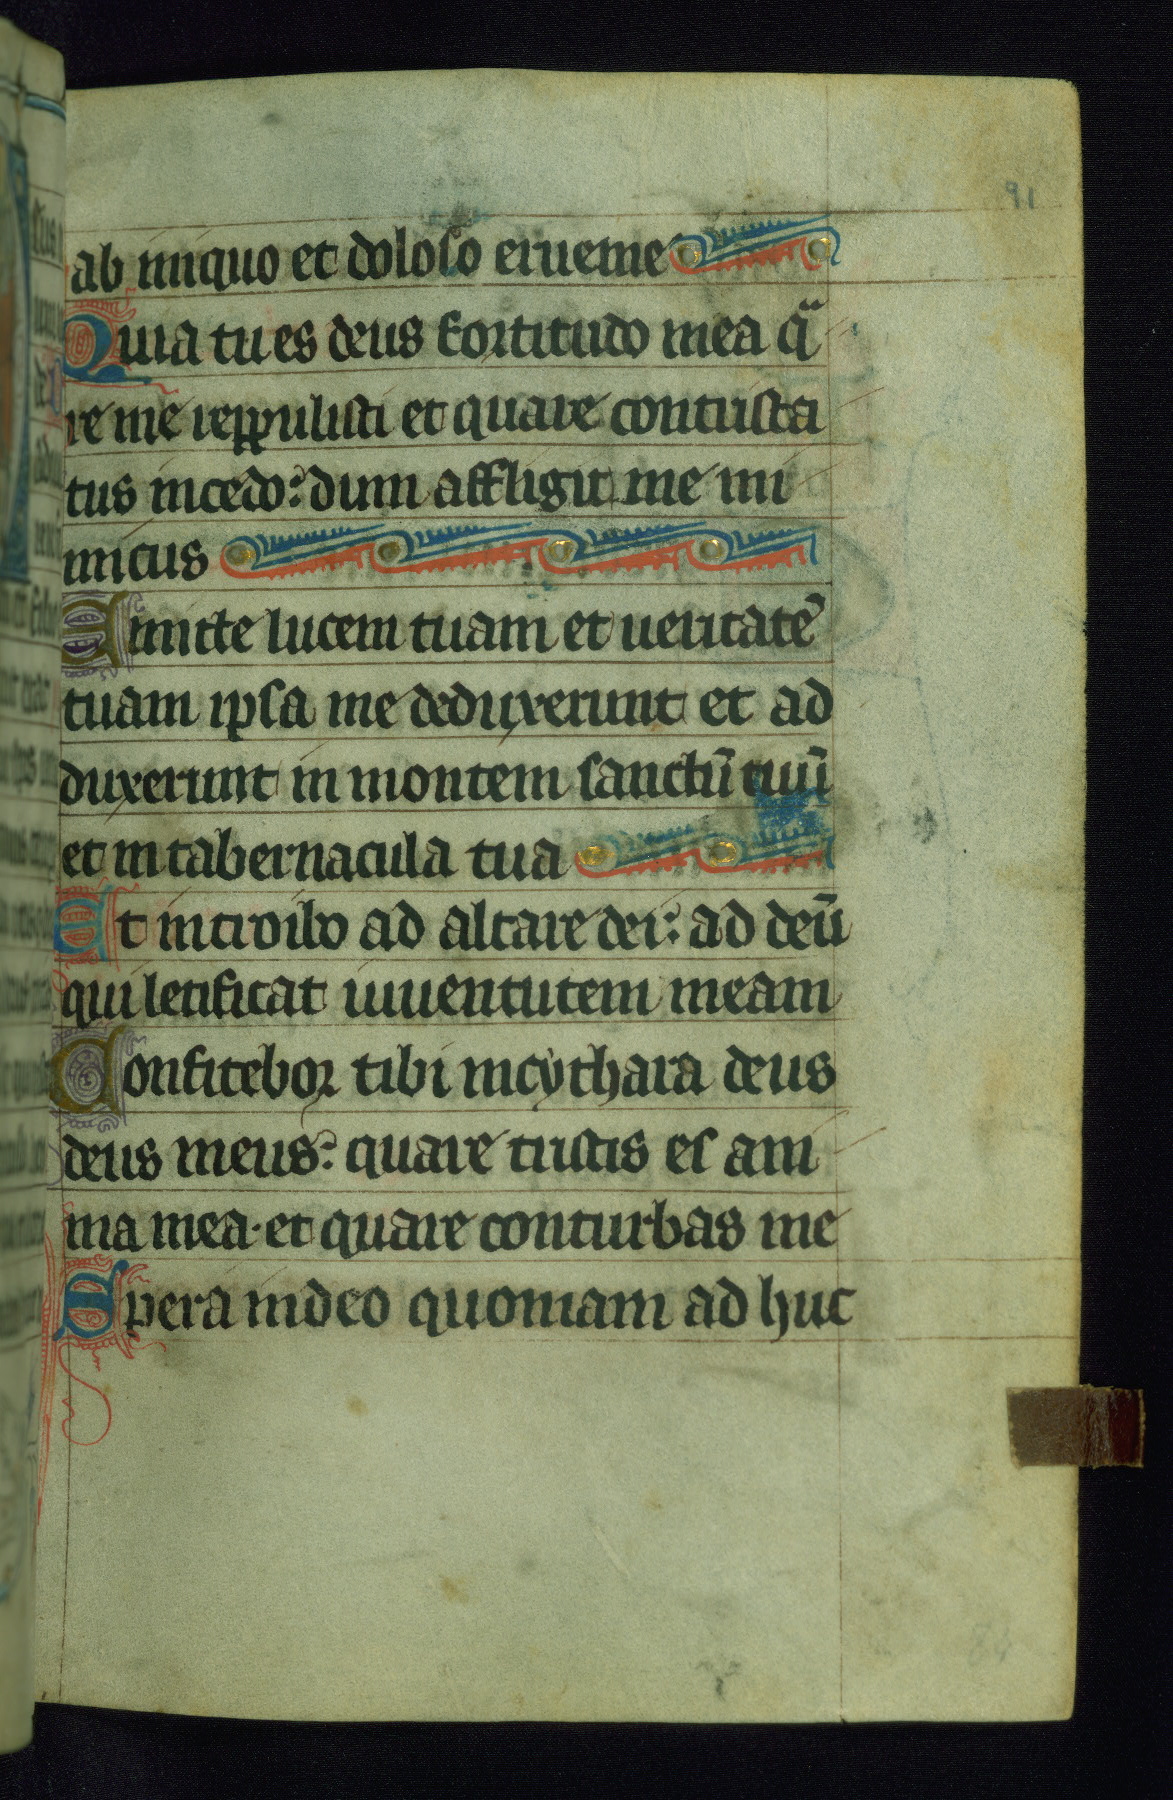 91
ab iniquo et doloso erueme
Quia tu es deus fortitudo mea q̄
re me reppulisti et quare contrista
tus incedo: dum affligit me ini
micus
Emitte lucem tuam et ueritatē
tuam ipsa me deduxerunt et ad
duxerunt in montem sanctū tuū
et in tabernacula tua
Et introibo ad altare dei: ad deū
qui letificat iuuentutem meam
Confitebor tibi in cythara deus
deus meus: quare tristis es ani
ma mea· et quare conturbas me
Spera in deo quoniam ad huc
84